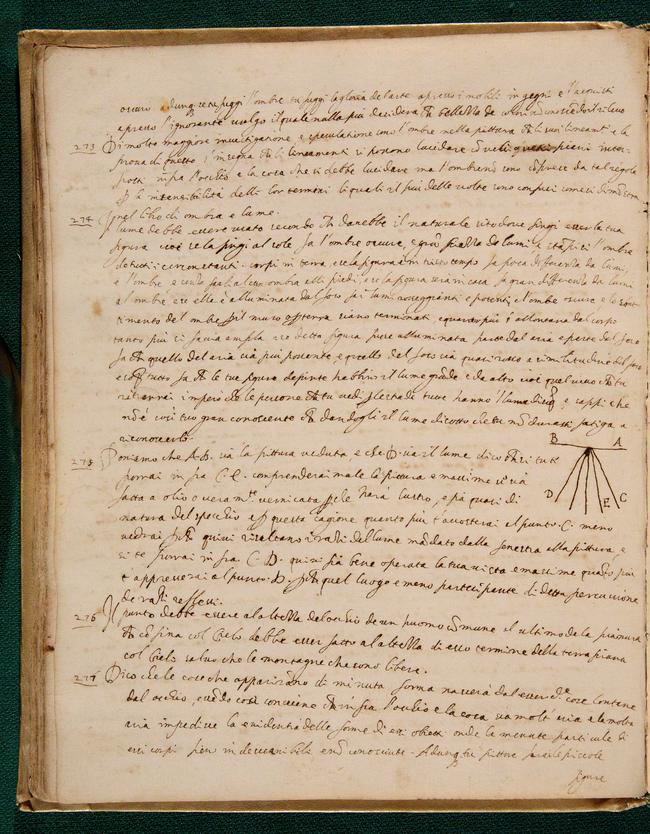 oscuro adunq. se tu fuggi l'ombre tu fuggi la gloria del arte apresso i nobili ingegni e l'acquisti
apresso l'ignorante vulgo il quale nulla più desidera che bellezza de
273 Di molto maggiore investigatione e speculatione sono l'ombre nella pittura che li suoi lineamti e la
prova di questo s'insegna che li lineamenti si possono lucidare con veli
posti infra l'occhio e la cosa che si debbe lucidare ma l'ombre non sono comprese da tal regola
p la insensibilità delli lor termini li quali il più delle volte sono confusi come si dimostra
nel libro di ombra e lume.
274 Il lume debbe essere usato secondo che darebbe il naturale sito dove fingi esser la tua
figura cioè se la fingi al sole fa l'ombre oscure, e gran piazze de lumi e stapisci l'ombre
de tutti i circonstanti corpi in terra, e se la figura è in tristo tempo fa poca differentia da lumi,
a l'ombre e senza farli alcuna ombra alli piedi, e se la figura sarà in casa fa gran differentia da lumi
a l'ombre
timento de l'ombre
tanto più si faccia ampla e se detta figura fusse alluminata parte dal aria e parte dal foco
fa che quello del aria sia più potente e quello del foco sia quasi rosso a similitudine del foco
e sop. tutto fa che le tue figure depinte habbino il lume grande e da alto cioè quel vivo che tu
ritrarrai impero che le persone che tu vedi p le strade tutte hanno il lume di sop. e sappi che
non è così tuo gran conoscente che dandogli il lume di sotto che tu non durassi fatiga a
riconoscerlo.
275 Poniamo che A.B. sia la pittura veduta e che D. sia il lume dico che se tu te
porrai infra C.E. comprenderai male la pittura e massime se sia
fatta a olio o veram.te vernicata p che harà lustro, e sia quasi di
natura del specchio e p questa cagione quanto più t'accosterai al punto .C. meno
vedrai p che quivi risaltano i razzi del lume mandato dalla fenestra alla pittura, e
si te porrai in fra C.D. quivi sia bene operata la tua vista e massime quanto più
t'appresserai al punto .D. p che quel luogo e meno participante di detta percussione
de razzi reflessi.
B A
D E C
276 Il punto debbe essere al altezza del occhio de un huomo comune el ultimo de la pianura
che confina col Cielo debbe esser fatto al altezza di esso termine della terra piana
col Cielo salvo che le montagne che sono libere.
277 Dico che le cose che appariranno di minuta forma nascerà dal esser d.e cose lontane
dal occhio, essendo così conviene che infra l'occhio e la cosa sia molt'aria e la molta
aria impedisce la evidentia delle forme di essi obietti onde le menute particule di
essi corpi sien indecernibile e non conosciute. Adunq. tu pittore farai le piccole
figure